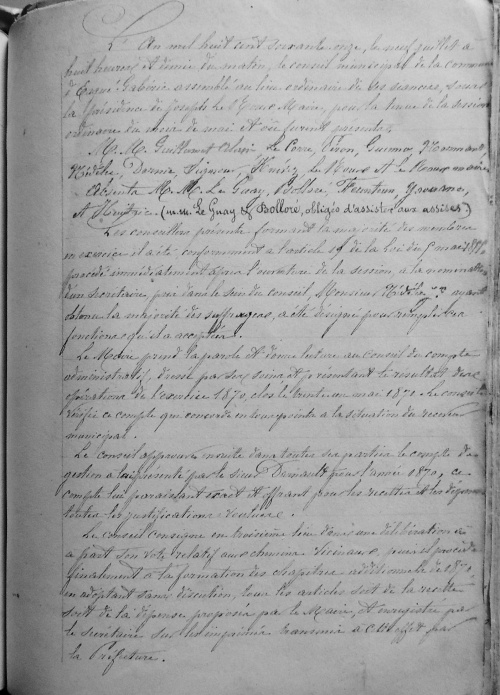 L'An mil huit cent soixante onze, le neuf juillet à
huit heures et demie du matin, le conseil municipal de la commune
d'Ergué-Gabéric assemblé au lieu ordinaire de ses séances, sous
la présidence de Joseph Le Roux Maire, pour la tenue de la session
ordinaire du mois de mai et où furent présents,
M.M. Le Corre,
Nédélec, Le Roux et Le
Absents M.M. Le Guay, Bolloré,
et (m.m. Le Guay & Bolloré, obligés d'assister aux assises)
Les conseillers présents formant la majorité des membres
en exercice il a été, conformément à l'article 19 de la Loi du 5 mai 1855
procédé immédiatement après l'ouverture de la session, à la nomination
d'un secrétaire, pris dans le sein du conseil, Monsieur ayant
obtenu la majorité des suffrages, a été désigné pour remplir les
fonctions qu'il a acceptées.
Le Maire prend la parole et donne lecture au conseil du compte
administratif, dressé par ses soins et présentant le résultat des
opérations de l'exercice 1870, clos le trente un mai 1871. Le conseil
vérifie ce compte qui concorde en tous points à la situation du receveur
municipal.
Le conseil approuve ensuite dans toutes ses parties le compte de
gestion à lui présenté par le sieur pour l'année 1870, ce
compte lui paraissant exact et offrant pour les recettes et les dépenses
toutes les justifications voulues.
Le conseil consigne en troisième lieu dans une délibération à
a part son vote relatif aux chemins vicinaux, puis il procède
finalement à la formation des chapitres additionnels de 1871
en adoptant sans discussion, tous les articles soit de la recette
soit de la dépense proposés par le Maire, et enregistrés par
le secrétaire sur les imprimés transmis à cet effet par
la Préfecture.